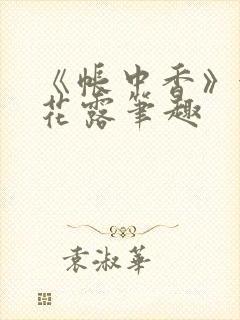 《帐中香》
花露笔趣
袁淑华